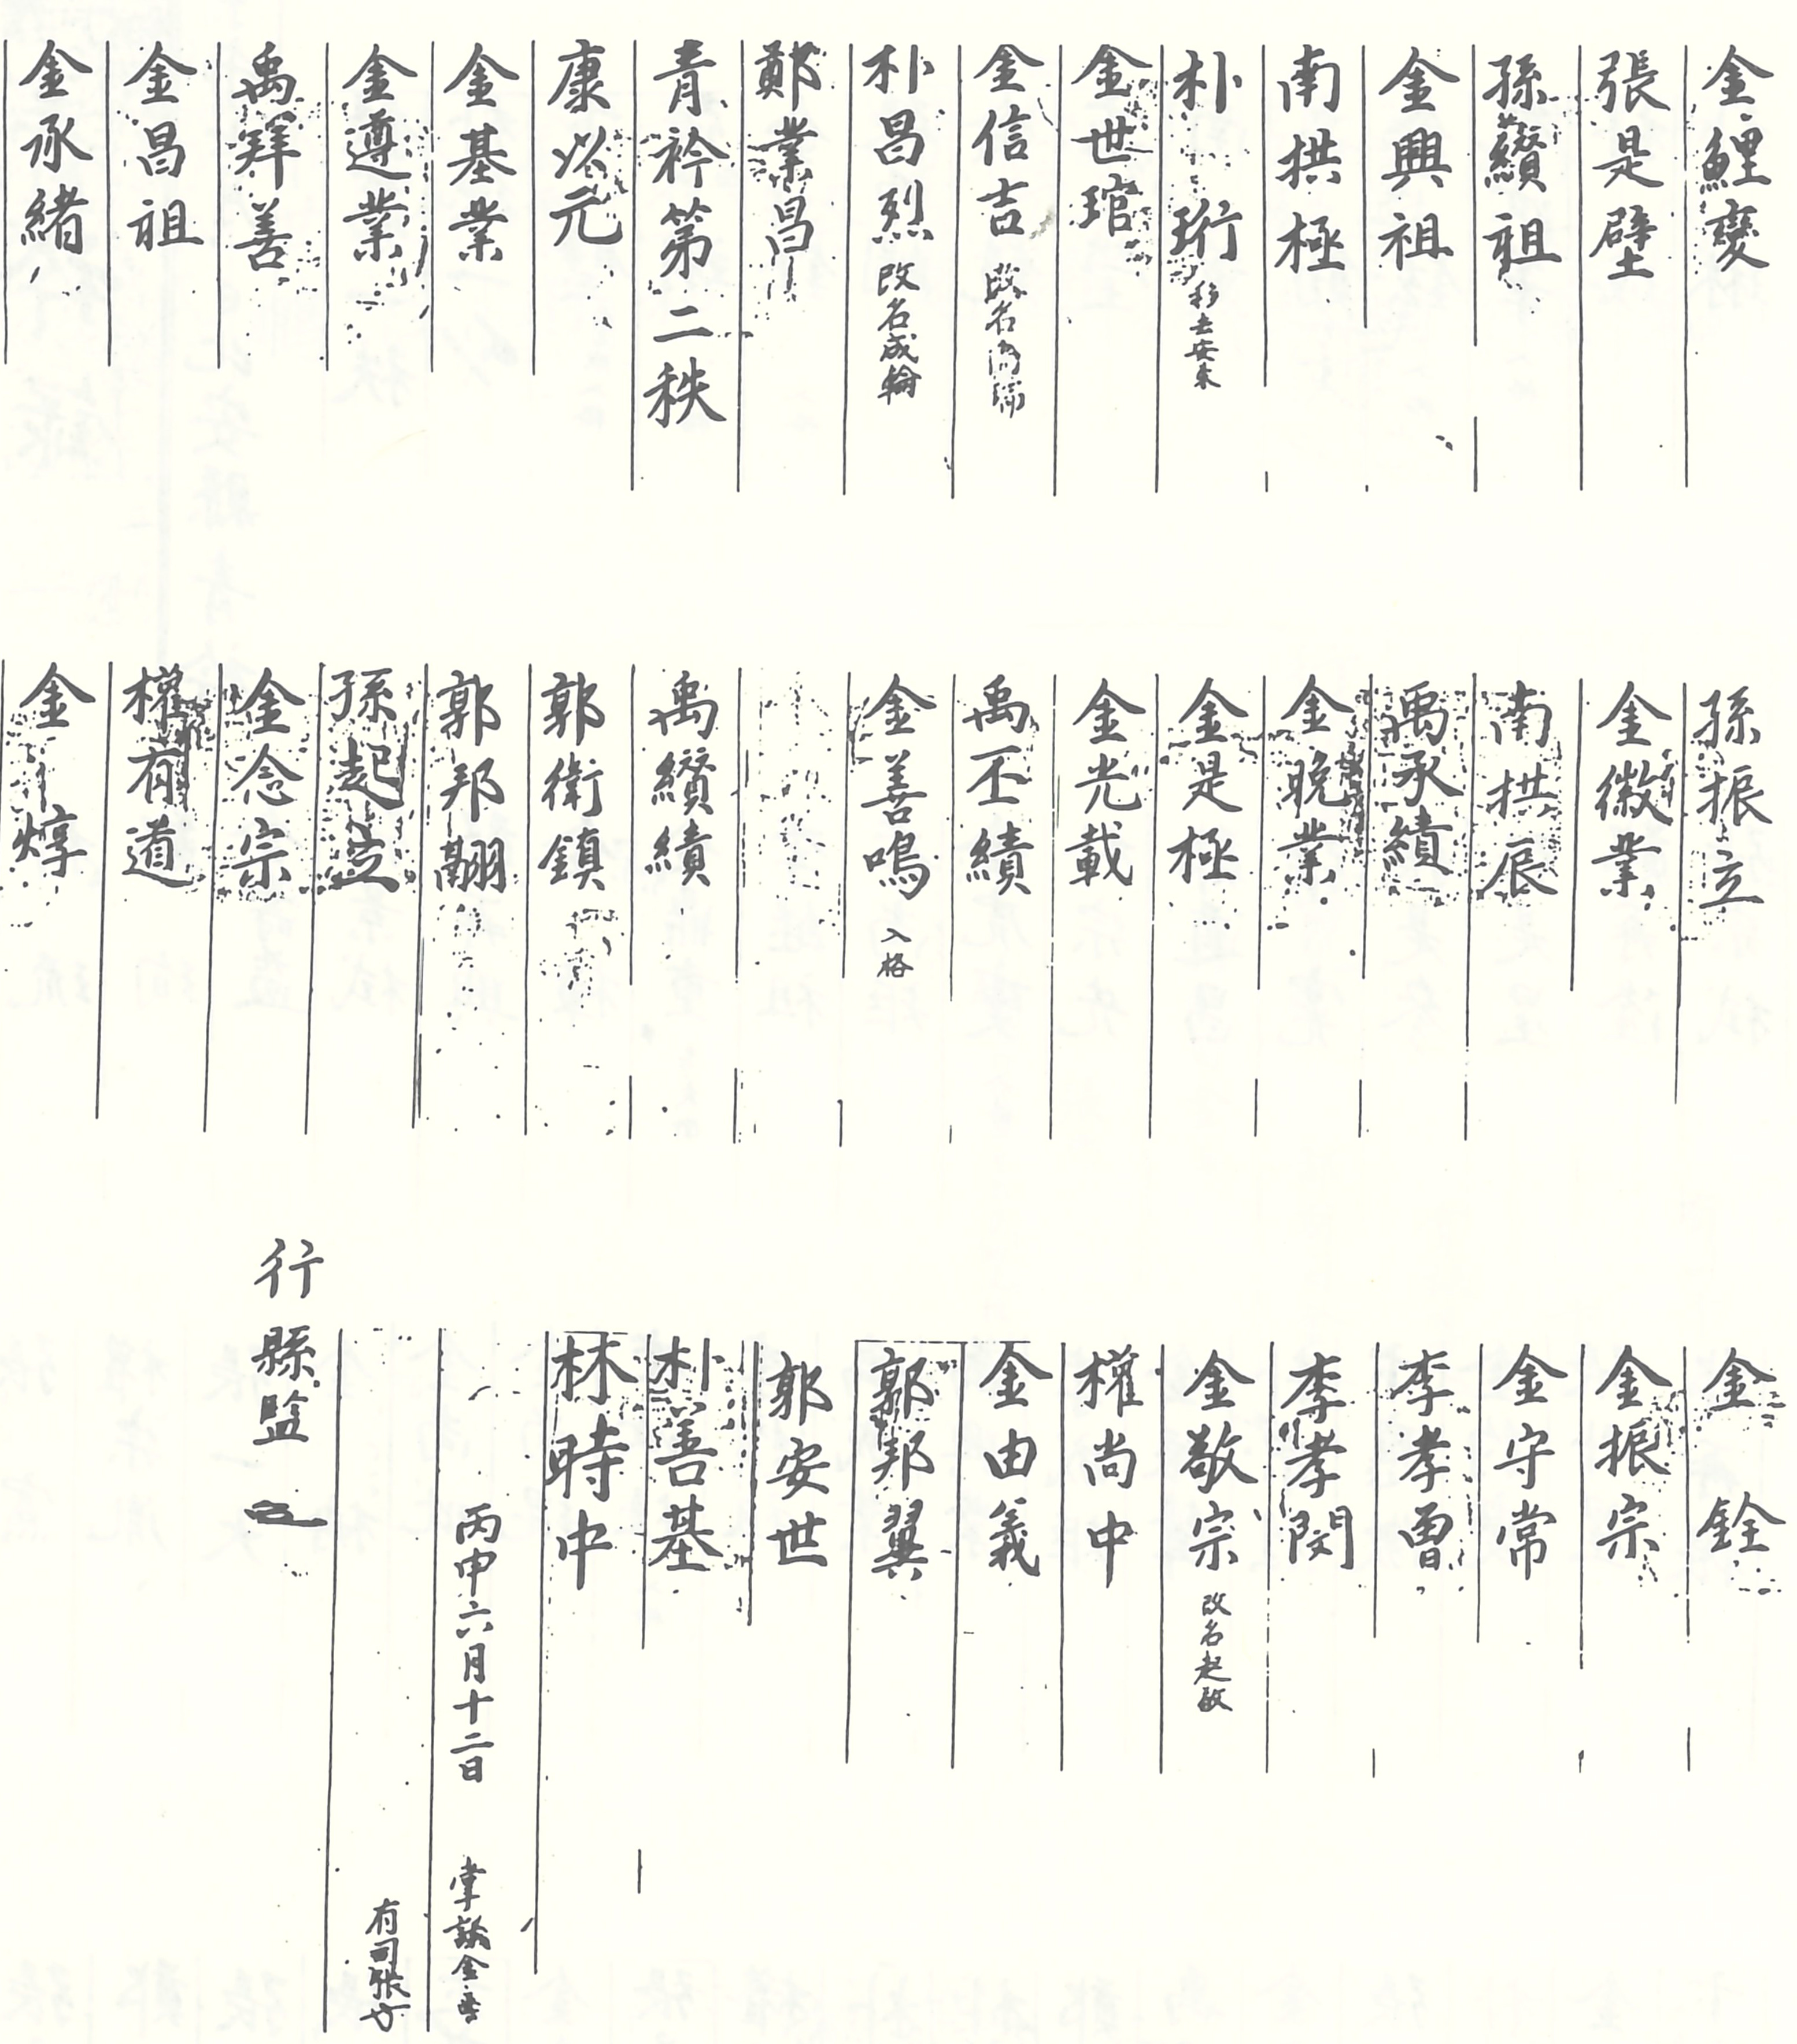 金鯉變
張是壁
孫纘祖
金興祖
南拱極
朴珩 移去安東
金世琯
金信吉 改名
朴昌烈 改名成輪
鄭業昌
青衿第二秩
康必元
金基業
金遵業
禹拜善
金昌祖
金承緒
孫振立
金徽業
南拱辰
禹承績
金晩業
金是極
金光載
禹丕績
金善鳴 入格
禹纘績
郭衛鎮
郭邦翮
孫起立
金念宗
權有道
金焞
金銓
金振宗
金守常
李孝曾
李孝閔
金敬宗 改名起敬
權尚中
金由義
郭邦翼
郭安世
朴善基
林時中
丙申六月十二日 掌議金
有司張
行縣監